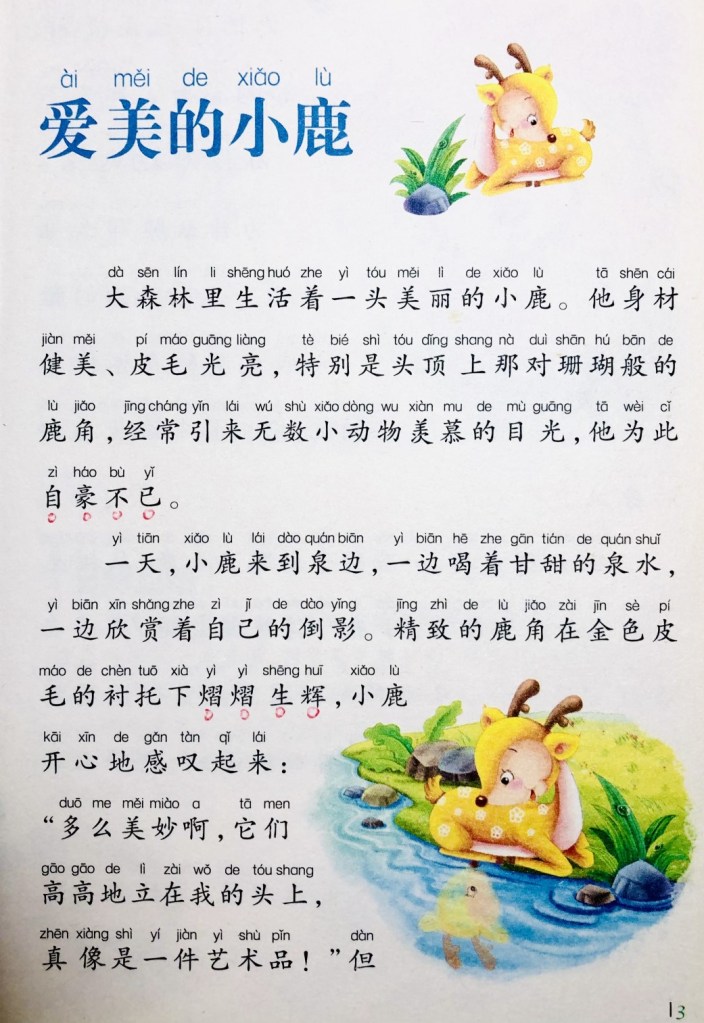 ài měi de xiǎo lù
爱美的小鹿
dà sēn lín li shēng huó zhe yì tóu měi lì de xiǎo lù tā shēn cái
大森林里生活着一头美丽的小鹿。他身材
jiàn měi pí máo guāng liàng tè bié shì tóu dǐng shang nà duì shān hú bān de
健美、皮毛光亮，特别是头顶上那对珊瑚般的
lù jiǎo jīng cháng yǐn lái wú shù xiǎo dòng wu xiàn mu de mù guāng tā wèi cǐ
鹿角，经常引来无数小动物羡慕的目光，他为此
zì háo bù yǐ
自豪不已。
yì tiān xiǎo lù lái dào quán biān yì biān hē zhe gān tián de quán shuǐ
一天，小鹿来到泉边，一边喝着甘甜的泉水，
yì biān xīn shǎng zhe zì jǐ de dào yǐng jīng zhì de lù jiǎo zài jīn sè pí
一边欣赏着自己的倒影。精致的鹿角在金色皮
máo de chèn tuō xià yì yì shēng huī xiǎo lù
毛的衬托下熠熠生辉，小鹿
kāi xīn de gǎn tàn qǐ lái
开心地感叹起来：
duō me měi miào a tā men
“多么美妙啊，它们
gāo gāo de lì zài wǒ de tóu shang
高高地立在我的头上，
zhēn xiàng shì yí jiàn yì shù pǐn dàn
真像是一件艺术品！”但
13